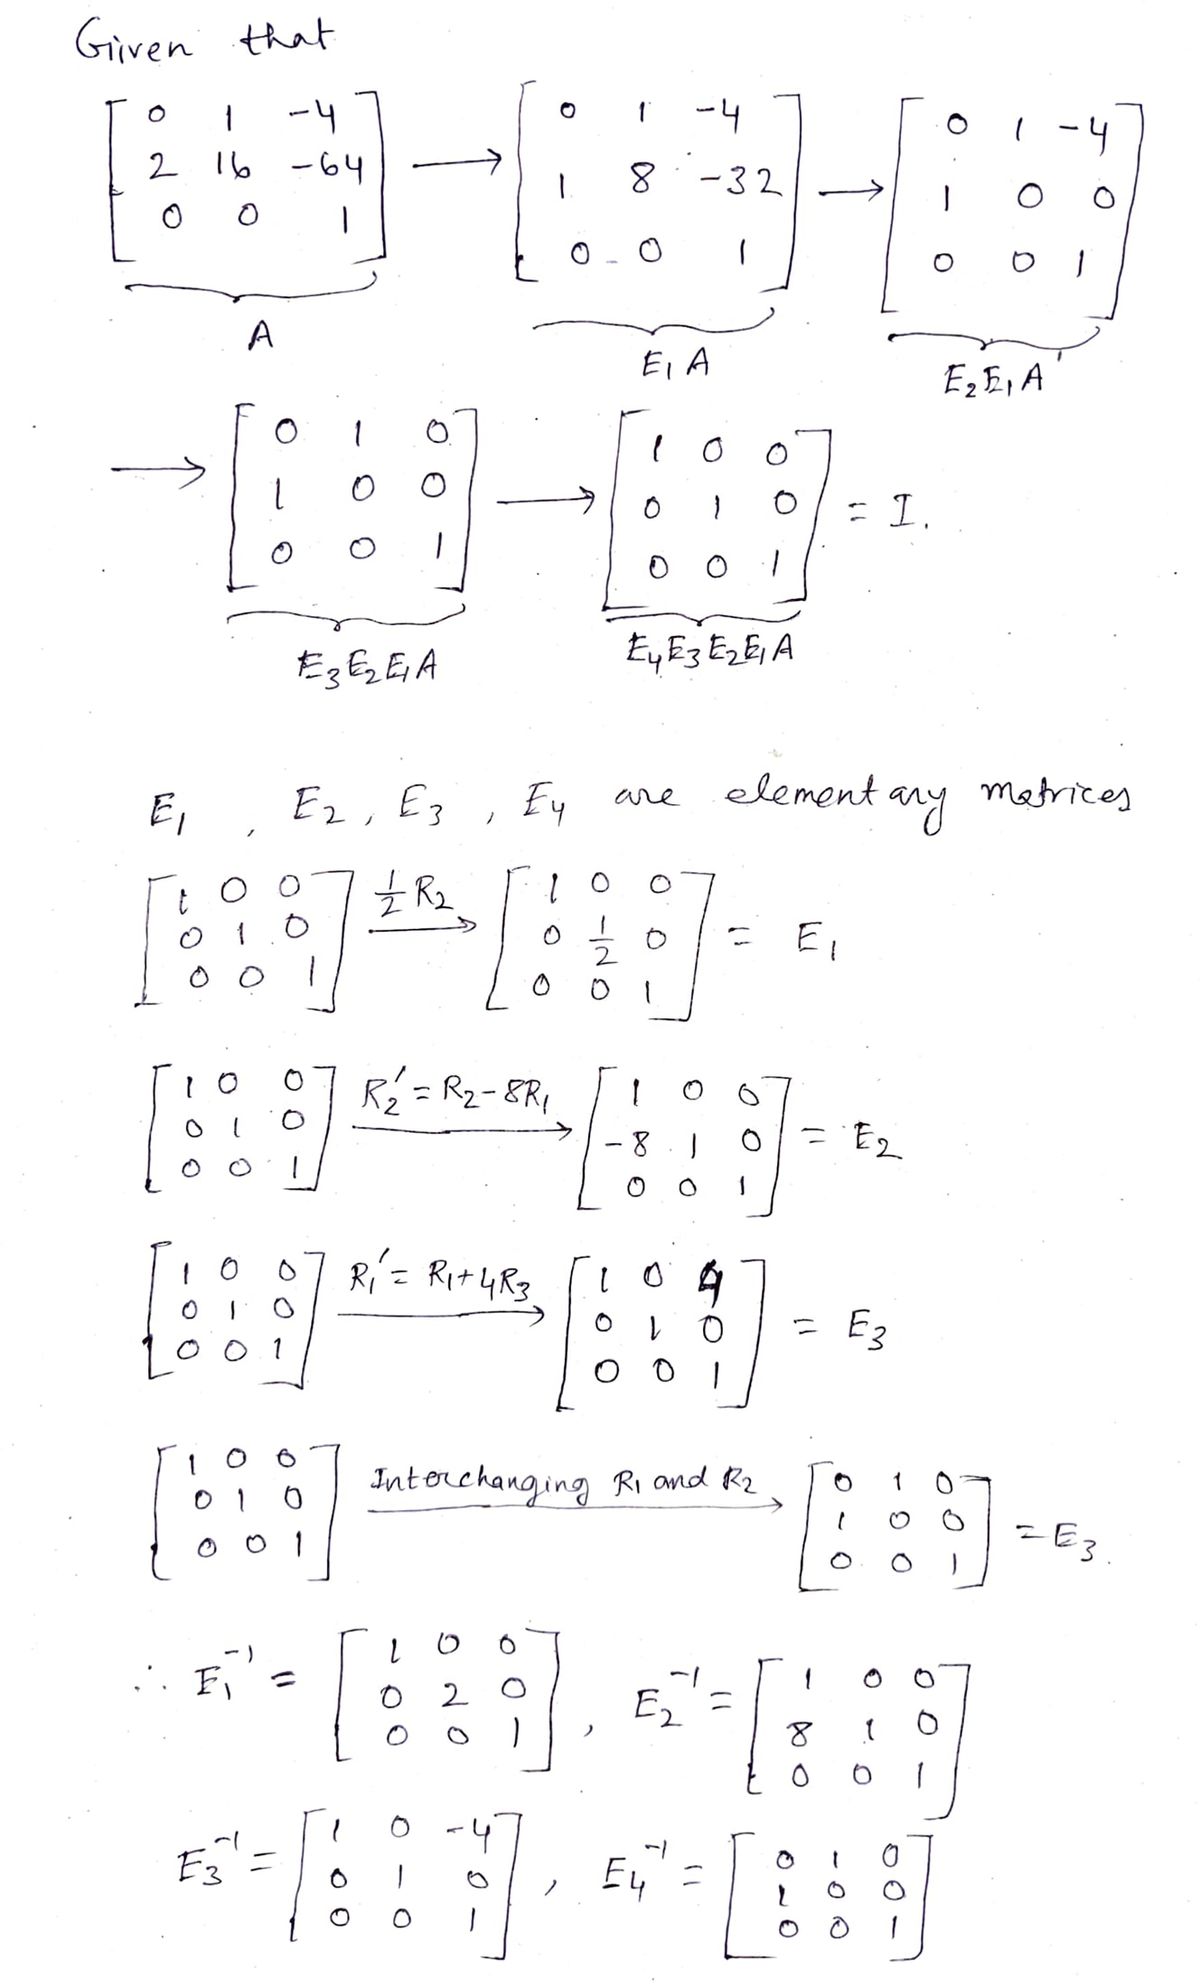 Given that
[0 1 -4; 2 16 -64; 0 0 1] → [0 1 -4; 1 8 -32; 0 0 1] → [0 1 -4; 1 0 0; 0 0 1]
A E₁A E₂E₁A
→ [0 1 0; 1 0 0; 0 0 1] → [1 0 0; 0 1 0; 0 0 1] = I.
E₃E₂E₁A E₄E₃E₂E₁A
E₁, E₂, E₃, E₄ are elementary matrices
[1 0 0; 0 1 0; 0 0 1] ½R₂ → [1 0 0; 0 ½ 0; 0 0 1] = E₁
[1 0 0; 0 1 0; 0 0 1] R₂′ = R₂-8R₁ → [1 0 0; -8 1 0; 0 0 1] = E₂
[1 0 0; 0 1 0; 0 0 1] R₁′ = R₁+4R₃ → [1 0 4; 0 1 0; 0 0 1] = E₃
[1 0 0; 0 1 0; 0 0 1] Interchanging R₁ and R₂ → [0 1 0; 1 0 0; 0 0 1] = E₃.
∴ E₁⁻¹ = [1 0 0; 0 2 0; 0 0 1], E₂⁻¹ = [1 0 0; 8 1 0; 0 0 1]
E₃⁻¹ = [1 0 -4; 0 1 0; 0 0 1], E₄⁻¹ = [0 1 0; 1 0 0; 0 0 1]